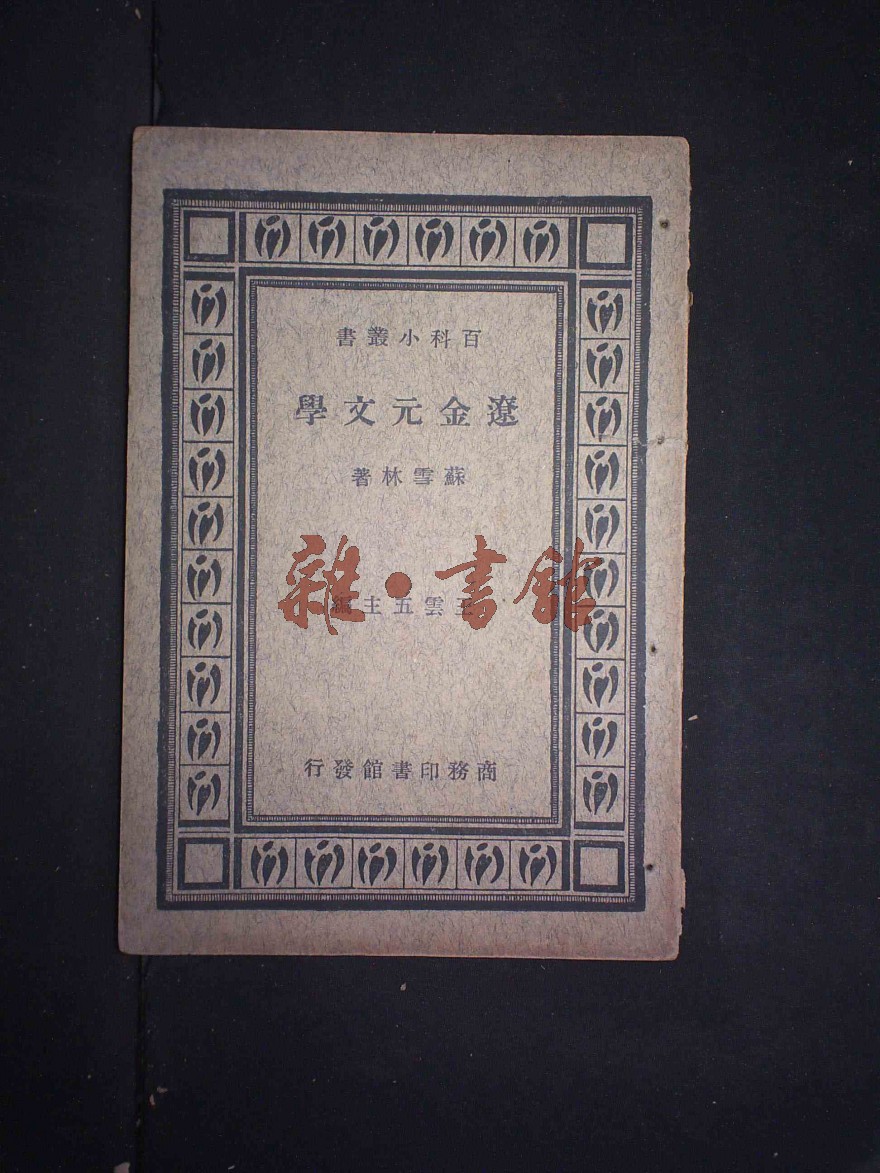 百科小叢書
遼金元文學
蘇雪林著
雜·書館
王雲五主編
商務印書館發行